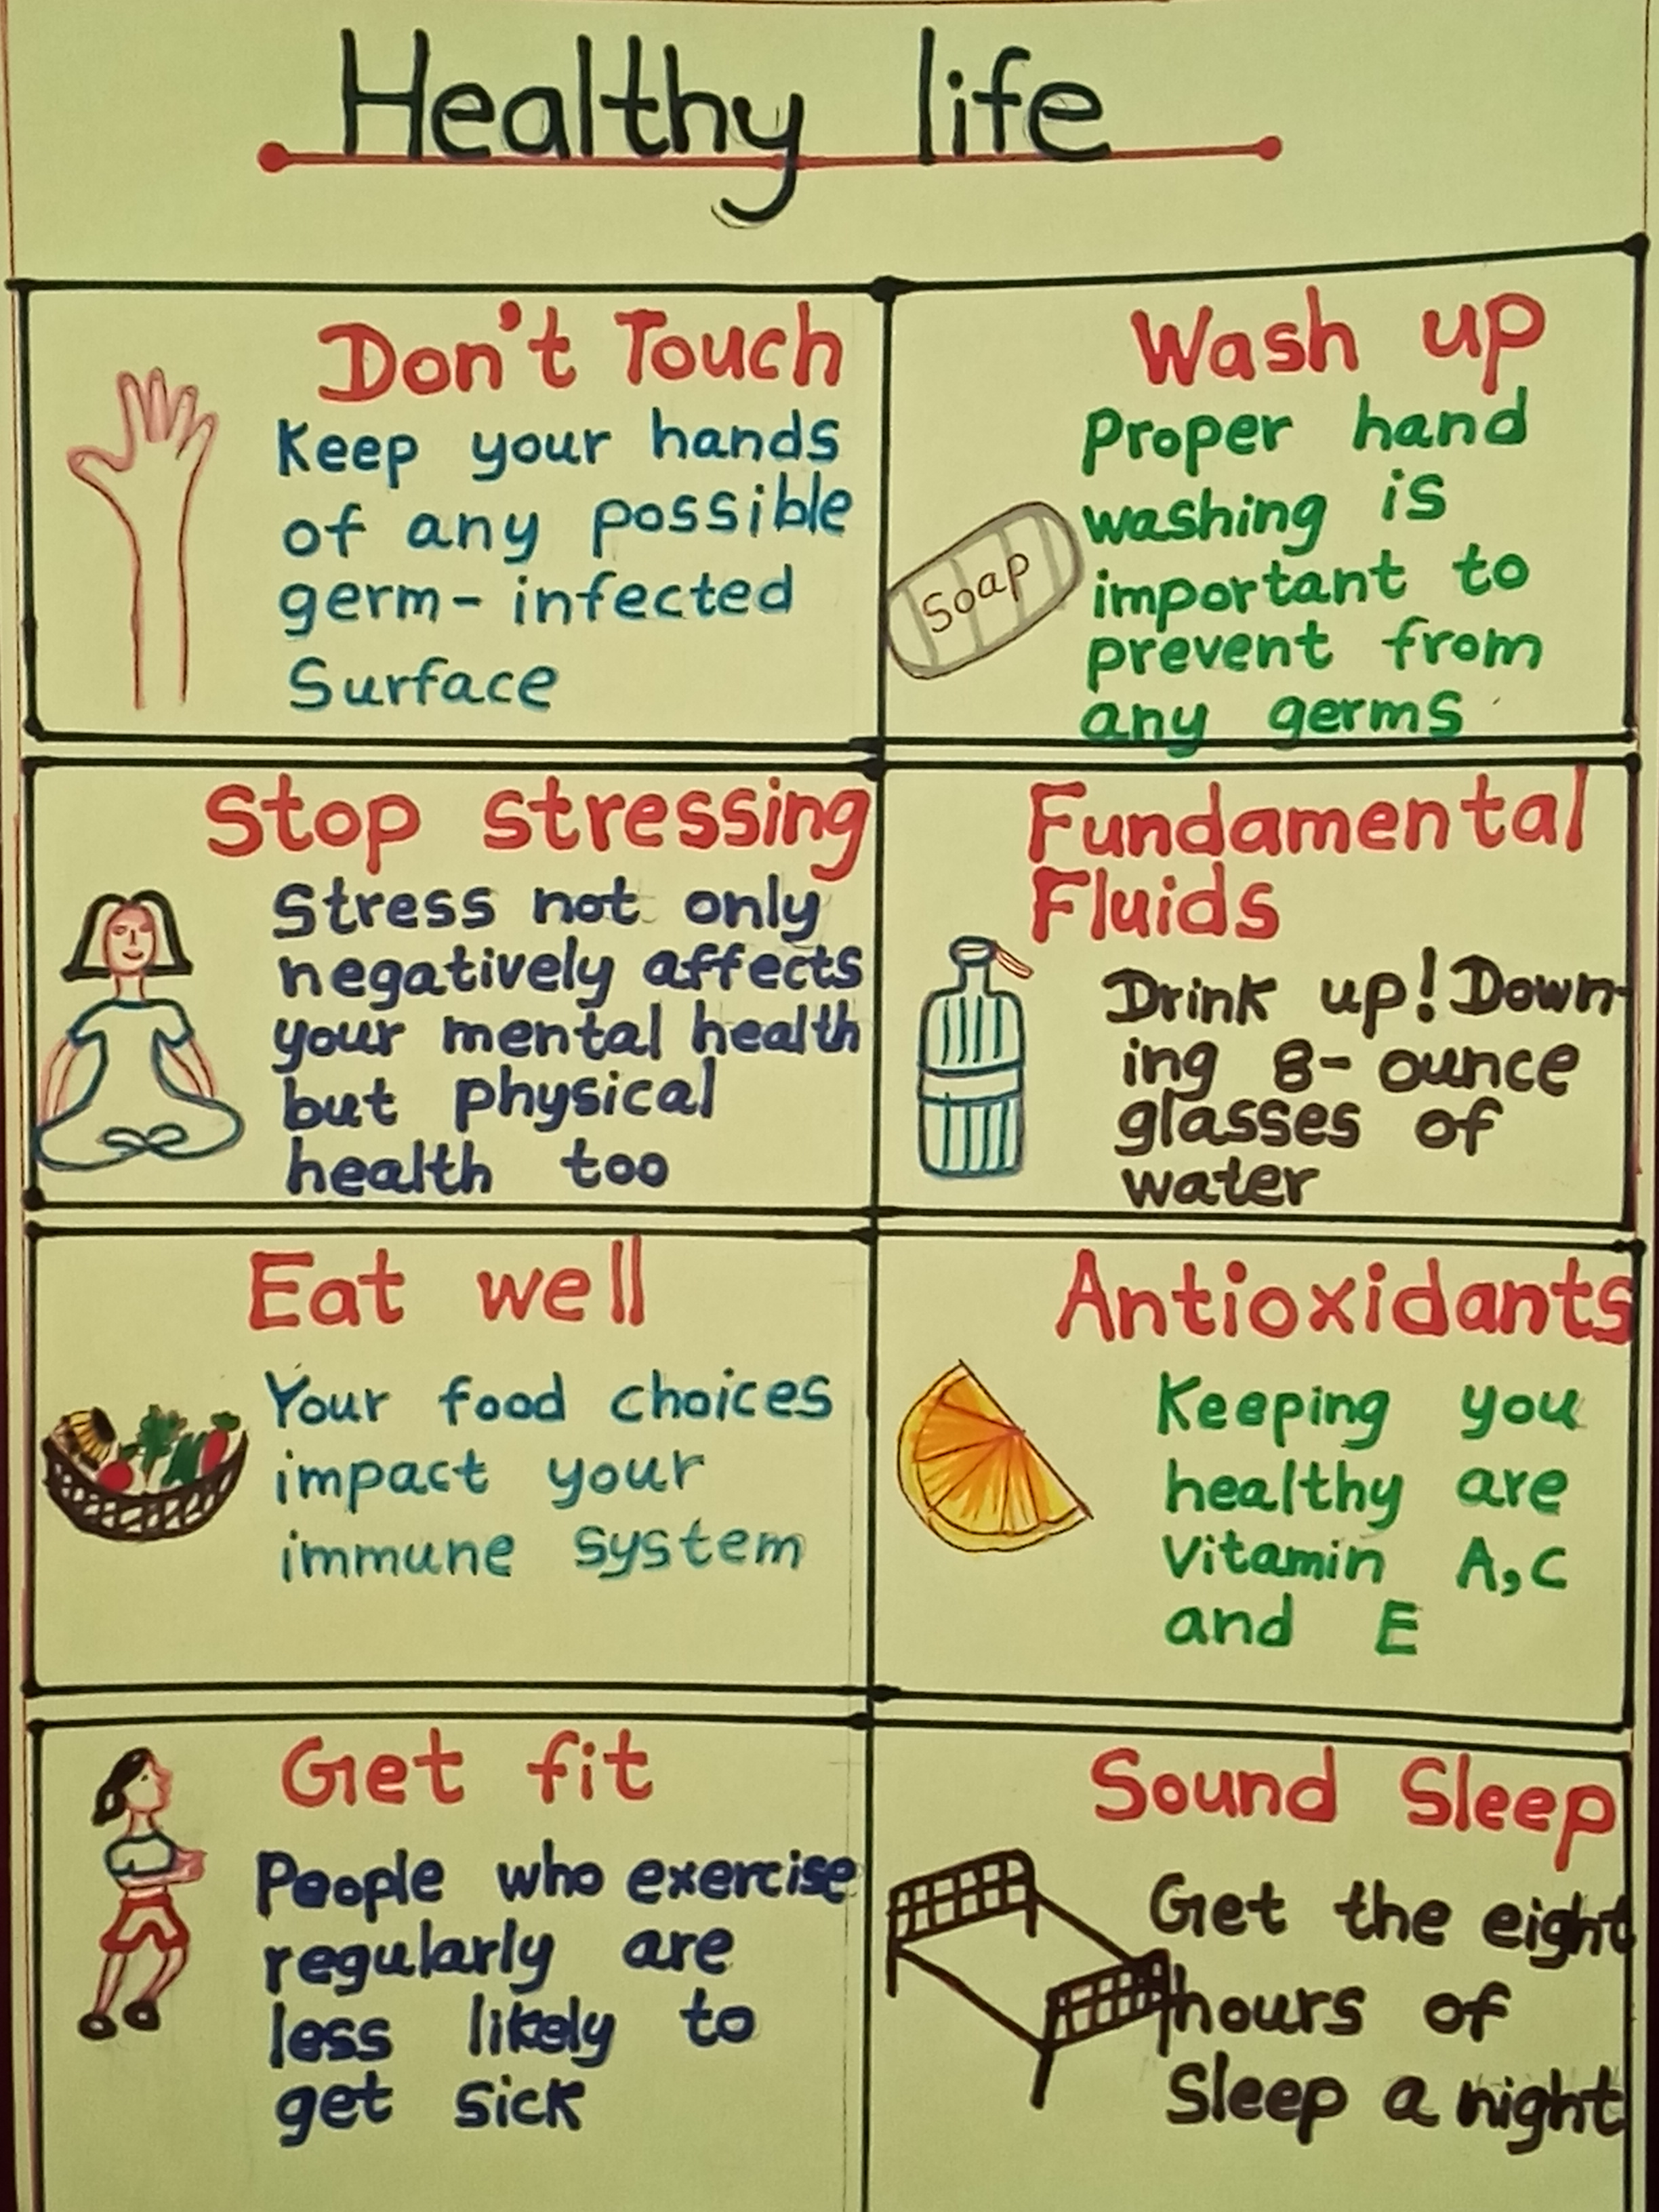 Healthy life
Don't Touch
Keep your hands
of any possible
germ- infected
Surface
Wash up
Proper hand
washing is
important to
prevent from
any germs
Soap
Stop stressing
Stress not only
negatively affects
your mental health
but physical
health too
Fundamental
Fluids
Drink up! Down-
ing 8- ounce
glasses of
water
Eat well
Your food choices
impact your
immune system
Antioxidants
Keeping you
healthy are
Vitamin A,C
and E
Get fit
People who exercise
regularly are
less likely to
get sick
Sound Sleep
Get the eight
hours of
Sleep a night